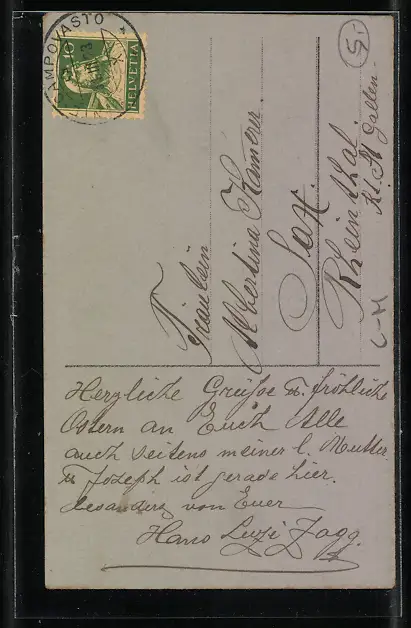 CAMPOVASTO
10
HELVETIA
5.-
Fräulein
Albertina Hanselm.
Sax.
Rheinthal.
Kt. St. Gallen.-
L-M
Herzliche Grüsse u. fröhliche
Ostern an Euch Alle
auch seitens meiner l. Mutter.
u Joseph ist gerade hier.
besonders von Euer
Hans Luzi Zogg.